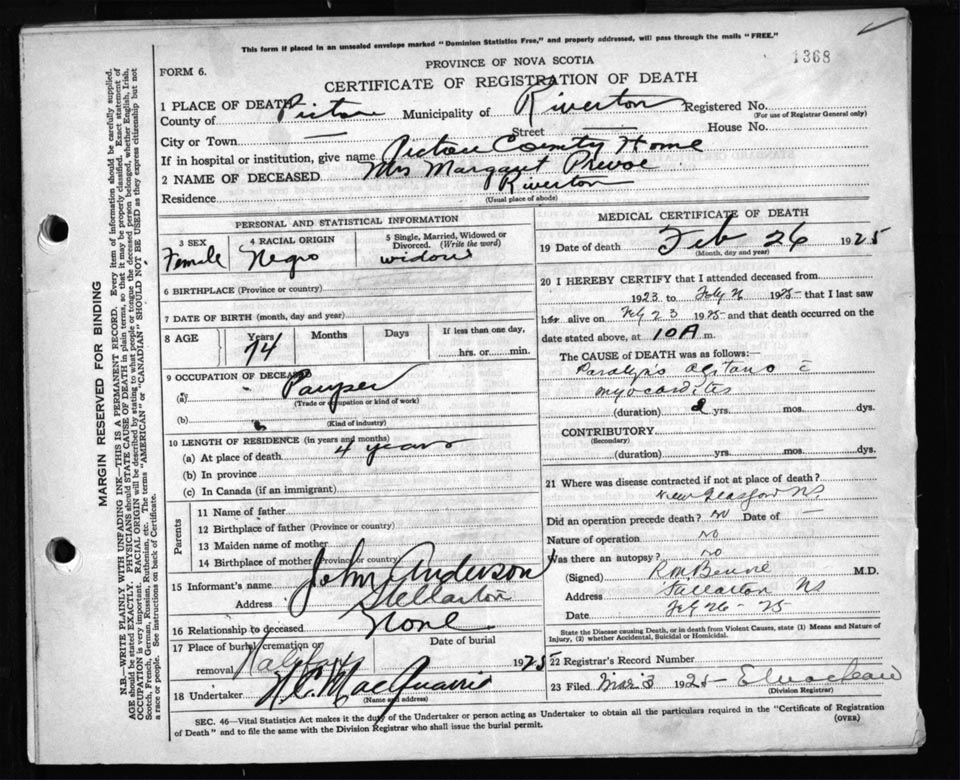 This form if placed in an unsealed envelope marked "Dominion Statistics Free," and properly addressed, will pass through the mails "FREE."
1368
PROVINCE OF NOVA SCOTIA
FORM 6.
CERTIFICATE OF REGISTRATION OF DEATH
1 PLACE OF DEATH
County of Pictou Municipality of Riverton Registered No.
(For use of Registrar General only)
City or Town — Street — House No.
If in hospital or institution, give name Pictou County Home
2 NAME OF DECEASED Mrs Margaret Prevoe
Residence Riverton
(Usual place of abode)
PERSONAL AND STATISTICAL INFORMATION
3 SEX Female
4 RACIAL ORIGIN Negro
5 Single, Married, Widowed or Divorced. (Write the word) widow
6 BIRTHPLACE (Province or country)
7 DATE OF BIRTH (month, day and year)
8 AGE Years 74 Months Days If less than one day, hrs. or min.
9 OCCUPATION OF DECEASED
(a) Pauper
(Trade or occupation or kind of work)
(b)
(Kind of industry)
10 LENGTH OF RESIDENCE (in years and months)
(a) At place of death 4 years
(b) In province
(c) In Canada (if an immigrant)
Parents
11 Name of father
12 Birthplace of father (Province or country)
13 Maiden name of mother
14 Birthplace of mother (Province or country)
15 Informant's name John Anderson
Address Stellarton
16 Relationship to deceased None
17 Place of burial, cremation or removal Halifax Date of burial 1925
18 Undertaker H.C. MacQuarrie
(Name and address)
MEDICAL CERTIFICATE OF DEATH
19 Date of death Feb 26 1925
(Month, day and year)
20 I HEREBY CERTIFY that I attended deceased from
1923 to Feby 26 1925 that I last saw
her alive on Feby 23 1925 and that death occurred on the
date stated above, at 10 A m.
The CAUSE OF DEATH was as follows:—
Paralysis agitans c̄
myocarditis
(duration) 2 yrs. mos. dys.
CONTRIBUTORY
(Secondary)
(duration) yrs. mos. dys.
21 Where was disease contracted if not at place of death?
New Glasgow NS
Did an operation precede death? no Date of —
Nature of operation no
Was there an autopsy? no
(Signed) M.D.
Address Stellarton NS
Date Feby 26 - 25
State the Disease causing Death, or in death from Violent Causes, state (1) Means and Nature of Injury, (2) whether Accidental, Suicidal or Homicidal.
22 Registrar's Record Number
23 Filed Mar 3 1925
(Division Registrar)
SEC. 46—Vital Statistics Act makes it the duty of the Undertaker or person acting as Undertaker to obtain all the particulars required in the "Certificate of Registration
of Death" and to file the same with the Division Registrar who shall issue the burial permit.
(OVER)
MARGIN RESERVED FOR BINDING
N.B.—WRITE PLAINLY WITH UNFADING INK—THIS IS A PERMANENT RECORD. Every item of information should be carefully supplied.
AGE should be stated EXACTLY. PHYSICIANS should STATE CAUSE OF DEATH in plain terms, so that it may be properly classified. Exact statement of
OCCUPATION is very important. RACIAL ORIGIN will be described by stating to what people or tongue the deceased person belonged, whether English, Irish,
Scotch, French, German, Russian, Ruthenian, etc. The terms "AMERICAN" or "CANADIAN" SHOULD NOT BE USED as they express citizenship but not
a race or people. See instructions on back of Certificate.